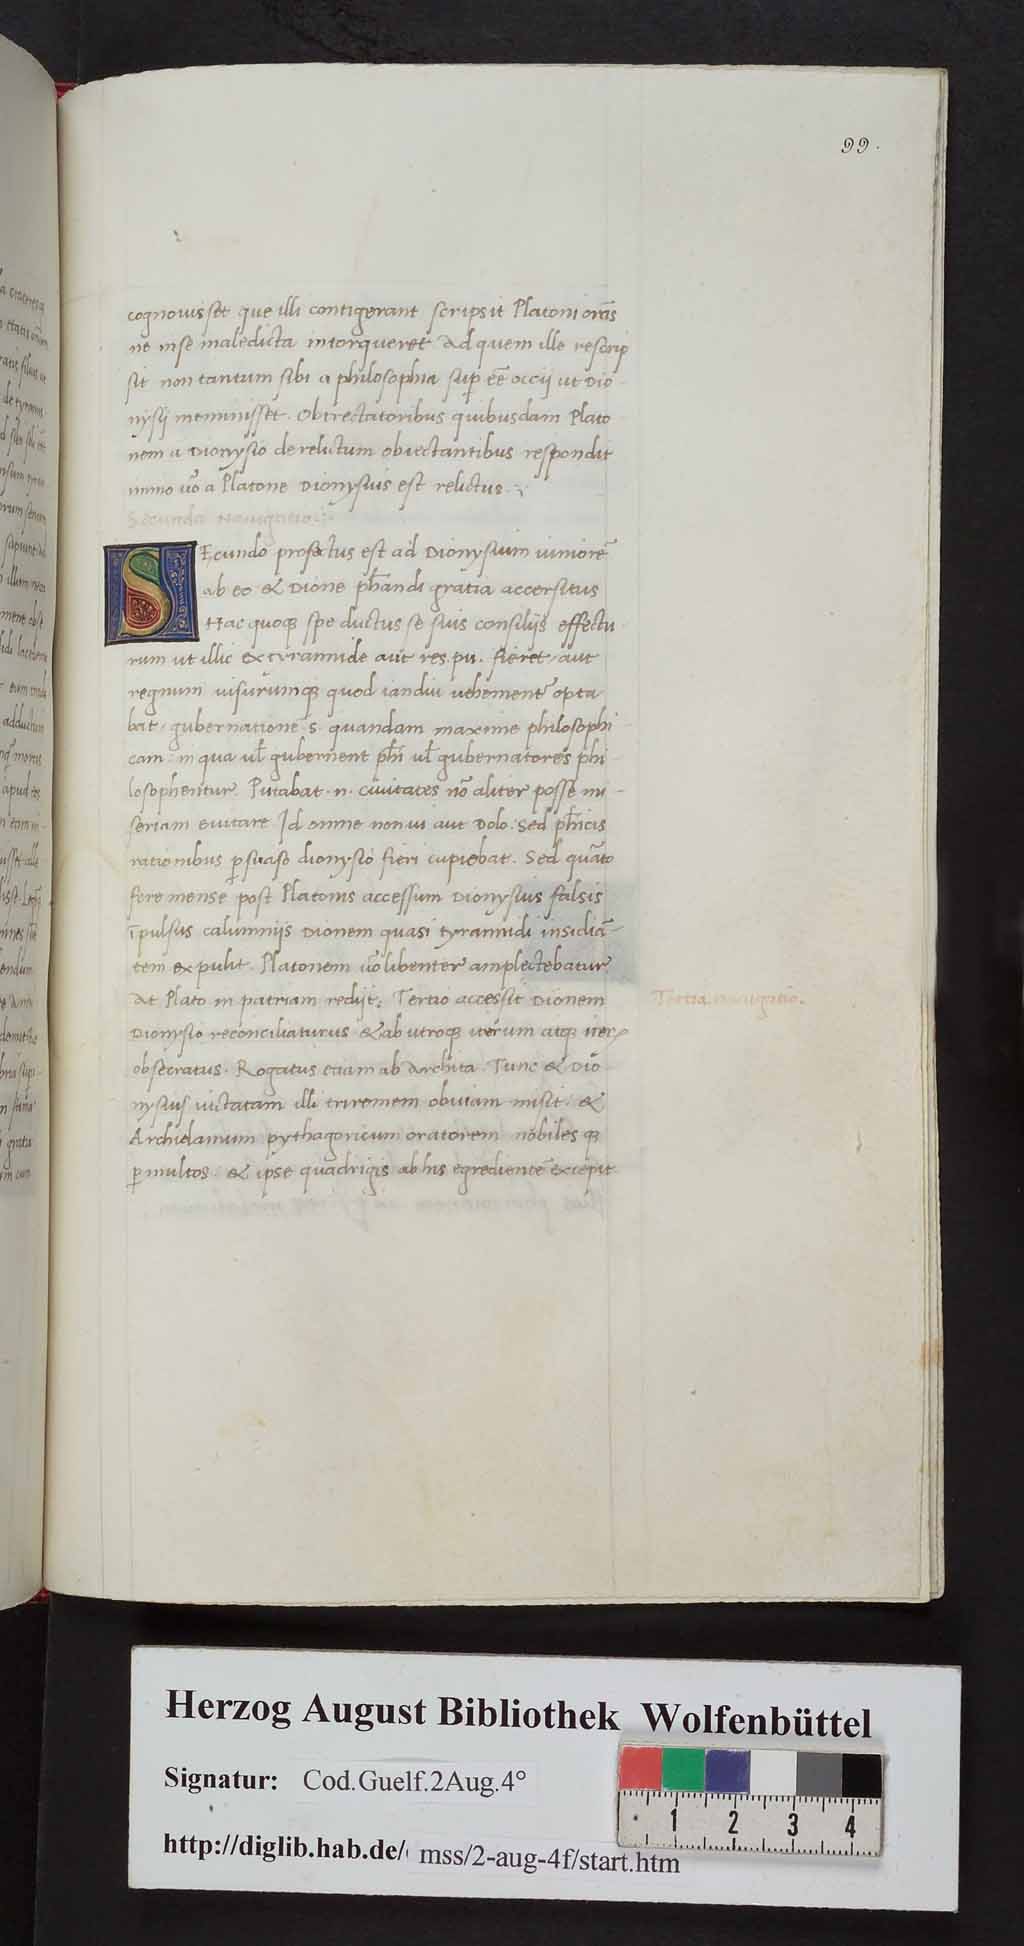 99.
cognouisset que illi contigerant scripsit Platoni orãs
ne inse maledicta intorqueret Ad quem ille rescrip
sit non tantum sibi a philosophia sup̱ eẽ occij ut Dio
nysij meminisset. Obtrectatoribus quibusdam Plato
nem a Dionysio derelictum obiectantibus respondit
immo uõ a Platone Dionysius est relictus.
Secunda Nauigatio:
SEcundo profectus est ad Dionysium iuniorẽ
ab eo & Dione ph̃andi gratia accersitus
Hac quoq; spe ductus se suis consilijs effectu
rum ut illic ex tyrannide aut res. pu. fieret, aut
regnum uisurumq; quod iandiu uehement̃ opta
bat, gubernationẽ .s. quandam maxime philosophi
cam: in qua ul̃ gubernent ph̃i ul̃ gubernatores phi
losophentur. Putabat .n. ciuitates nõ aliter posse mi-
seriam euitare. Id omne non ui aut Dolo: Sed ph̃icis
rationibus p̱suaso dionysio fieri cupiebat. Sed quãto
fere mense post Platonis accessum Dionysius falsis
ĩpulsus calumnijs Dionem quasi tyrannidi insidiã-
tem expulit. Platonem uõ libenter amplectebatur
At Plato in patriam redijt. Tertio accessit Dionem
Tertia nauigatio.
Dionysio reconciliaturus & ab utroq; iterum atq; iter
obsecratus. Rogatus etiam ab Archita. Tunc & Dio
nysius uictatam illi triremem obuiam misit. &
Archidamum pythagoricum oratorem nobiles q;
p̱multos. & ipse quadrigis ab his egredientẽ excepit
Herzog August Bibliothek Wolfenbüttel
Signatur: Cod.Guelf.2Aug.4°
http://diglib.hab.de/ mss/2-aug-4f/start.htm
1 2 3 4